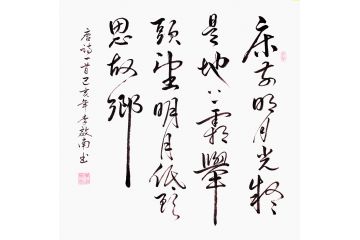 床前明月光疑
是地上霜舉
頭望明月低頭
思故鄉
唐詩一首己亥年李南书